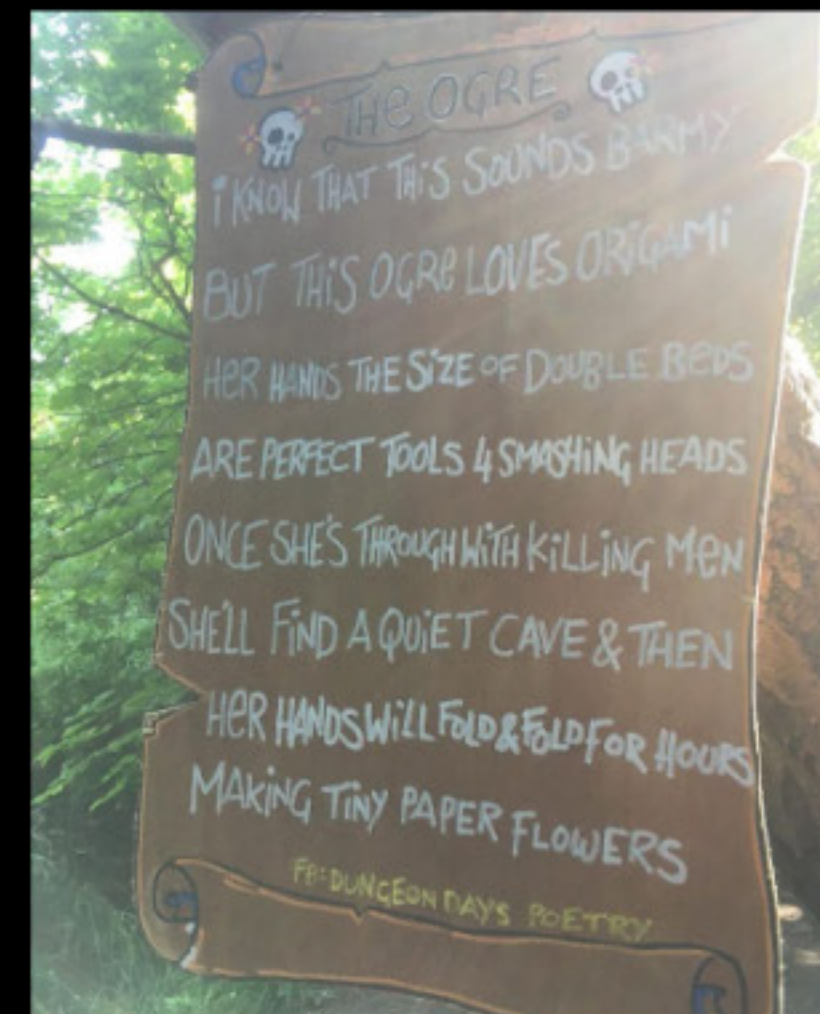 THe OGRE
i KNOW THAT THiS SOUNDS BARMY
BUT THiS OGRe LOVES ORiGAMi
HeR HANDS THE SiZE OF DOUBLE BeDS
ARE PERFECT TOOLS 4 SMASHiNG HEADS
ONCE SHE'S THROUGH WiTH KiLLiNG MeN
SHE'LL FiND A QUiET CAVE & THEN
HeR HANDS WiLL FOLD & FOLD FOR HOURS
MAKiNG TiNY PAPER FLOWERS
FB: DUNGEON DAY'S POETRY